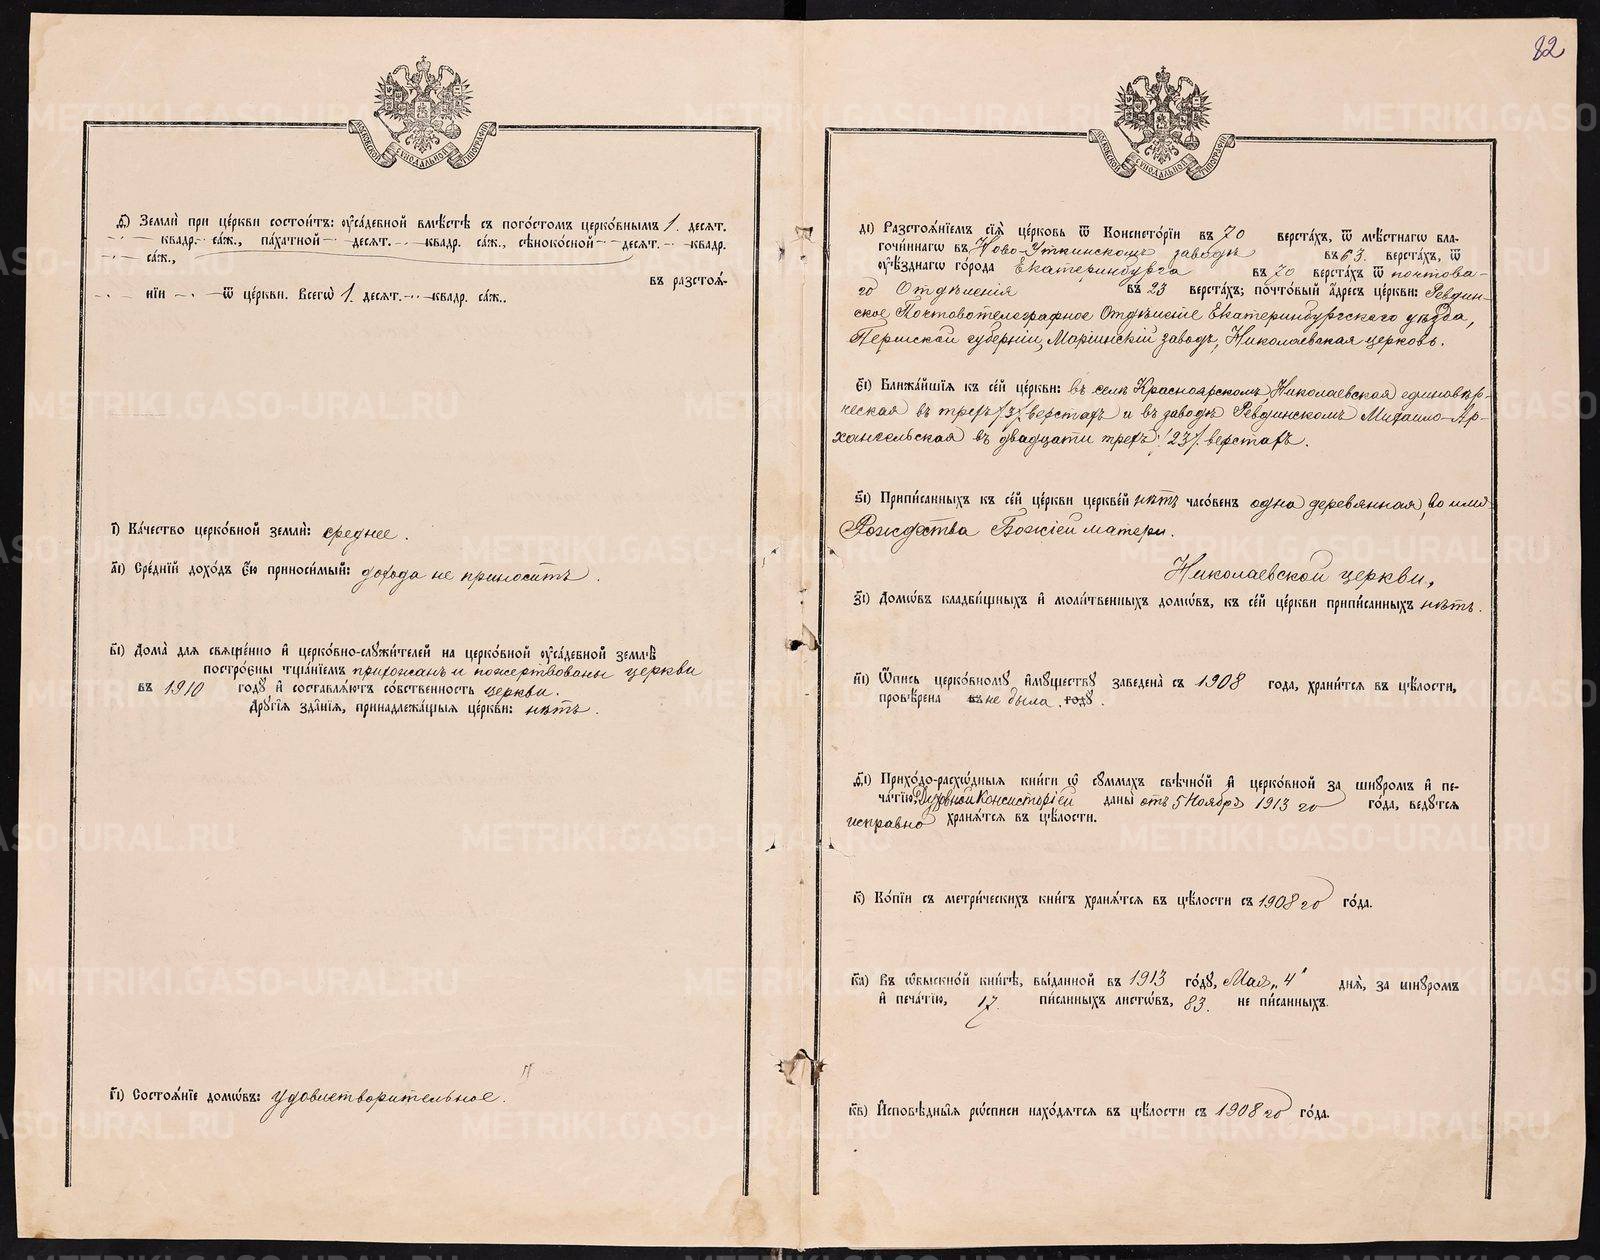 МОСКОВСКОЙ СѴНОДАЛЬНОЙ ТИПОГРАФІИ
ѳ҃) Землѝ при це́ркви состои́тъ: ᲂуса́дебной вмѣ́стѣ съ пого́стомъ церко́внымъ 1. десѧт.
квадр. са́ж., па́хатной десѧт. квадр. са́ж., сѣноко́сной десѧт. квадр.
са́ж.,
въ разстоѧ́-
нїи ѿ це́ркви. Всегѡ̀ 1. десѧт. квадр. са́ж..
і҃) Ка́чество церко́вной землѝ: среднее.
а҃і) Сре́днїй дохо́дъ є́ю приноси́мый: дохода не приноситъ.
в҃і) Дома̀ для свѧще́нно и҆ церко́вно-слꙋжи́телей на церко́вной ᲂуса́дебной землѣ̀
постро́ены тща́нїемъ прихожанъ и пожертвованы церкви
въ 1910 годꙋ̀ и҆ составлѧ́ютъ со́бственность церкви.
Дрꙋгі́ѧ зда̑нїѧ, принадлежа́щыѧ це́ркви: нѣтъ.
г҃і) Состоѧ́нїе домѡ́въ: удовлетворительное.
82
МОСКОВСКОЙ СѴНОДАЛЬНОЙ ТИПОГРАФІИ
д҃і) Разстоѧ́нїемъ сїѧ̀ це́рковь ѿ Консисто́рїи въ 70 верста́хъ, ѿ мѣ́стнагѡ бла-
гочи́ннагѡ въ Ново-Уткинскомъ заводѣ въ 63. верста́хъ, ѿ
ᲂуѣ́зднагѡ го́рода Екатеринбурга въ 70 верста́хъ ѿ почтова-
го Отдѣленія въ 23 верста́хъ; почто́вый а҆́дресъ це́ркви: Ревдин-
ское Почтовотелеграфное Отдѣленіе Екатеринбургскаго уѣзда,
Пермской губерніи, Маріинскій заводъ, Николаевская церковь.
є҃і) Ближа́йшїѧ къ се́й це́ркви: въ селѣ Красноярскомъ, Николаевская единовѣр-
ческая въ трехъ /3/ верстахъ и въ заводѣ Ревдинскомъ Михаило-Ар-
хангельская въ двадцати трехъ /23/. верстахъ.
ѕ҃і) Припи́санныхъ къ се́й це́ркви церкве́й нѣтъ часо́венъ одна деревянная, во имя
Рождества Божіей матери.
Николаевской церкви,
з҃і) Домѡ́въ кладби́щныхъ и҆ моли́твенныхъ домѡ́въ, къ се́й це́ркви припи́санныхъ нѣтъ.
и҃і) Ѻ҆́пись церко́вномꙋ и҆мꙋ́ществꙋ заведена̀ съ 1908 го́да, храни́тсѧ въ цѣ́лости,
провѣ́рена въ не была. годꙋ̀.
ѳ҃і) Прихо́до-расхѡ́дныѧ кни́ги ѡ҆ сꙋ́ммахъ свѣчно́й и҆ церко́вной за шнꙋро́мъ и҆ пе-
ча́тїю Духовной Консисторіей даны̀ отъ 5 Ноября 1913 го го́да, ведꙋ́тсѧ
исправно хранѧ́тсѧ въ цѣ́лости.
к҃) Ко́пїи съ метри́ческихъ кни́гъ хранѧ́тсѧ въ цѣ́лости съ 1908 го го́да.
к҃а) Въ ѡ҆́быскно́й кни́гѣ, вы́данной въ 1913 го́дꙋ, Мая „4" днѧ̀, за шнꙋро́мъ
и҆ печа́тїю, 17. пи́санныхъ листѡ́въ, 83. не пи́санныхъ.
к҃в) И҆сповѣ̑дныѧ рѡ́списи нахо́дѧтсѧ въ цѣ́лости съ 1908 го го́да.
METRIKI.GASO-URAL.RU